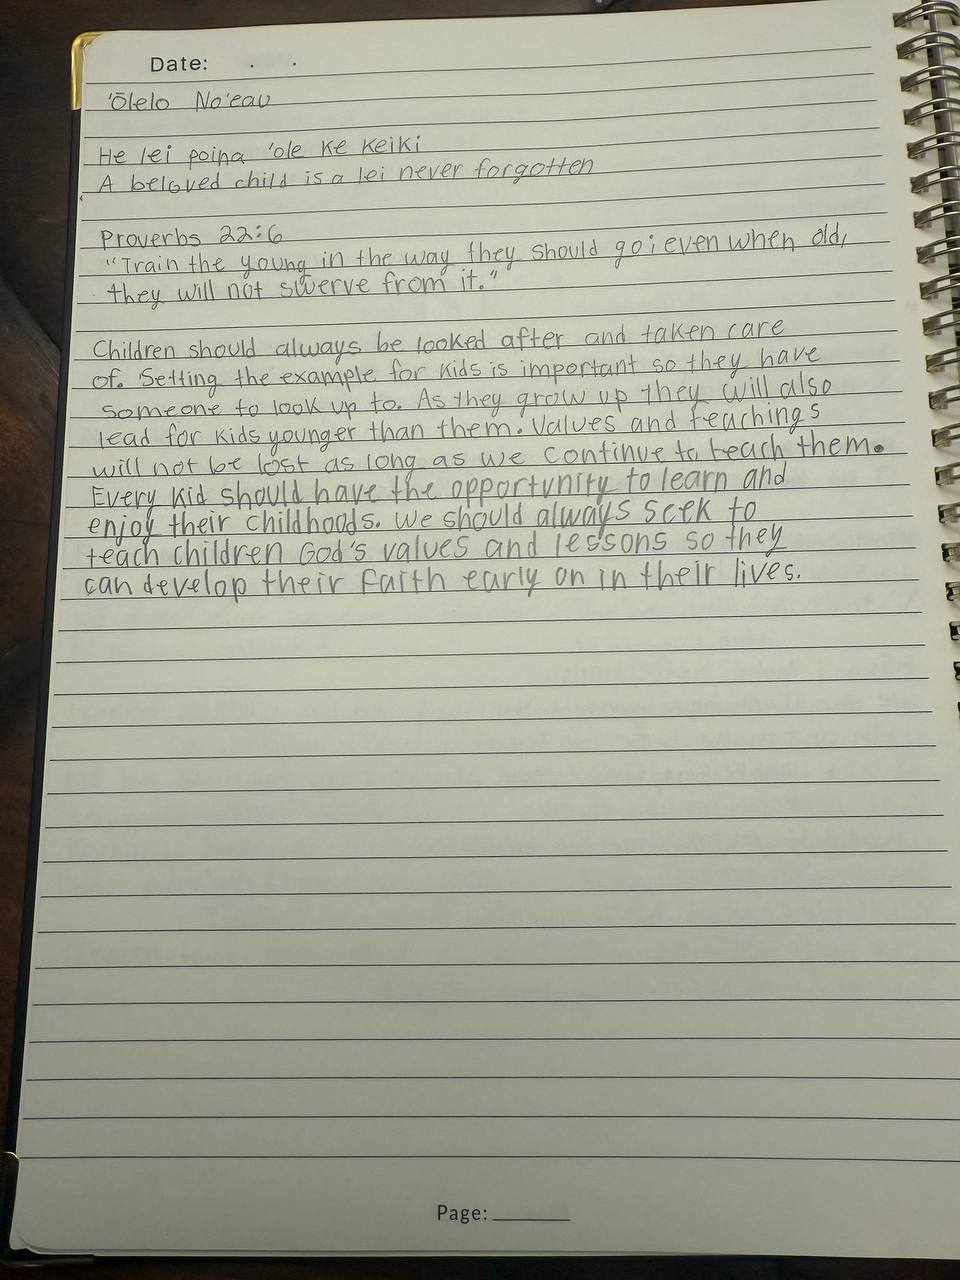 Date: . .
'Ōlelo No'eau
He lei poina 'ole ke keiki
A beloved child is a lei never forgotten
Proverbs 22:6
"Train the young in the way they should go; even when old,
they will not swerve from it."
Children should always be looked after and taken care
of. Setting the example for kids is important so they have
someone to look up to. As they grow up they will also
lead for kids younger than them. Values and teachings
will not be lost as long as we continue to teach them.
Every kid should have the opportunity to learn and
enjoy their childhoods. We should always seek to
teach children God's values and lessons so they
can develop their faith early on in their lives.
Page: